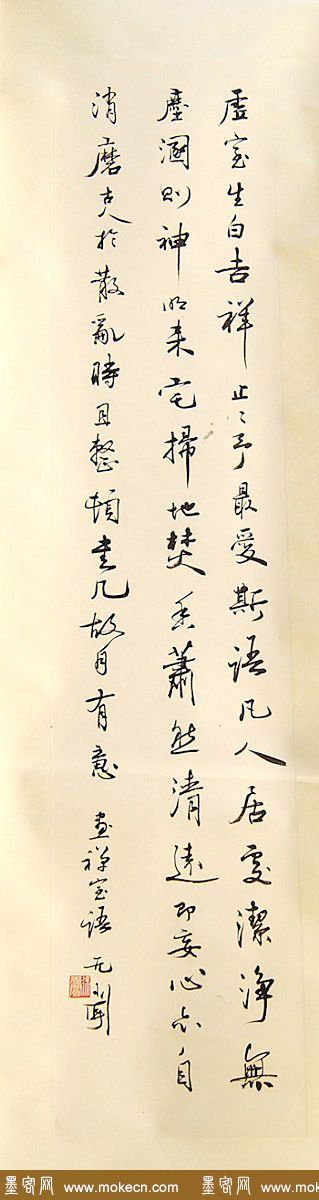 虗室生白吉祥止〻予最愛斯語凡人居處潔淨無
塵溷則神明来宅掃地焚香蕭然清遠即妄心亦自
消磨古人於散亂時且整頓書几故自有意
畫禅室語
墨客网 www.mokecn.com 墨客网 www.mokecn.